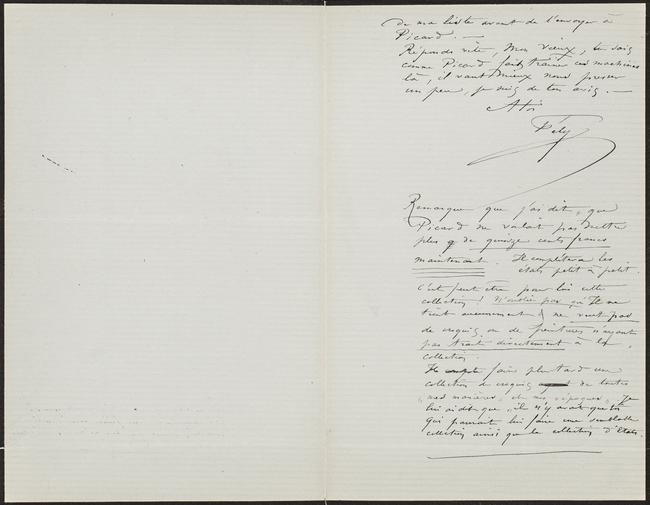 de ma liste avant de l'envoyer à
Picard. —
Réponds vite, mon vieux, tu sais
comme Picard fait traîner ces machines
là, il vaut mieux nous presser
un peu, je suis de ton avis. —
A toi
Fély
Remarque que j'ai dit, que
Picard ne voulait pas mettre
plus q de quinze cents francs
maintenant. Il complétera les
états petit à petit.
c'est peut être pour lui cette
collection! N'oublie pas qu'Il ne
tient aucunement & ne veut pas
de croquis ou de peintures n'ayant
pas trait directement à la
collection.
Il compte faire plus tard une
collection de croquis de toutes
"mes manières, et mes époques". Je
lui ai dit que, il n'y avait que toi
qui pourrait lui faire une semblable
collection ainsi que la collection d'Etats.